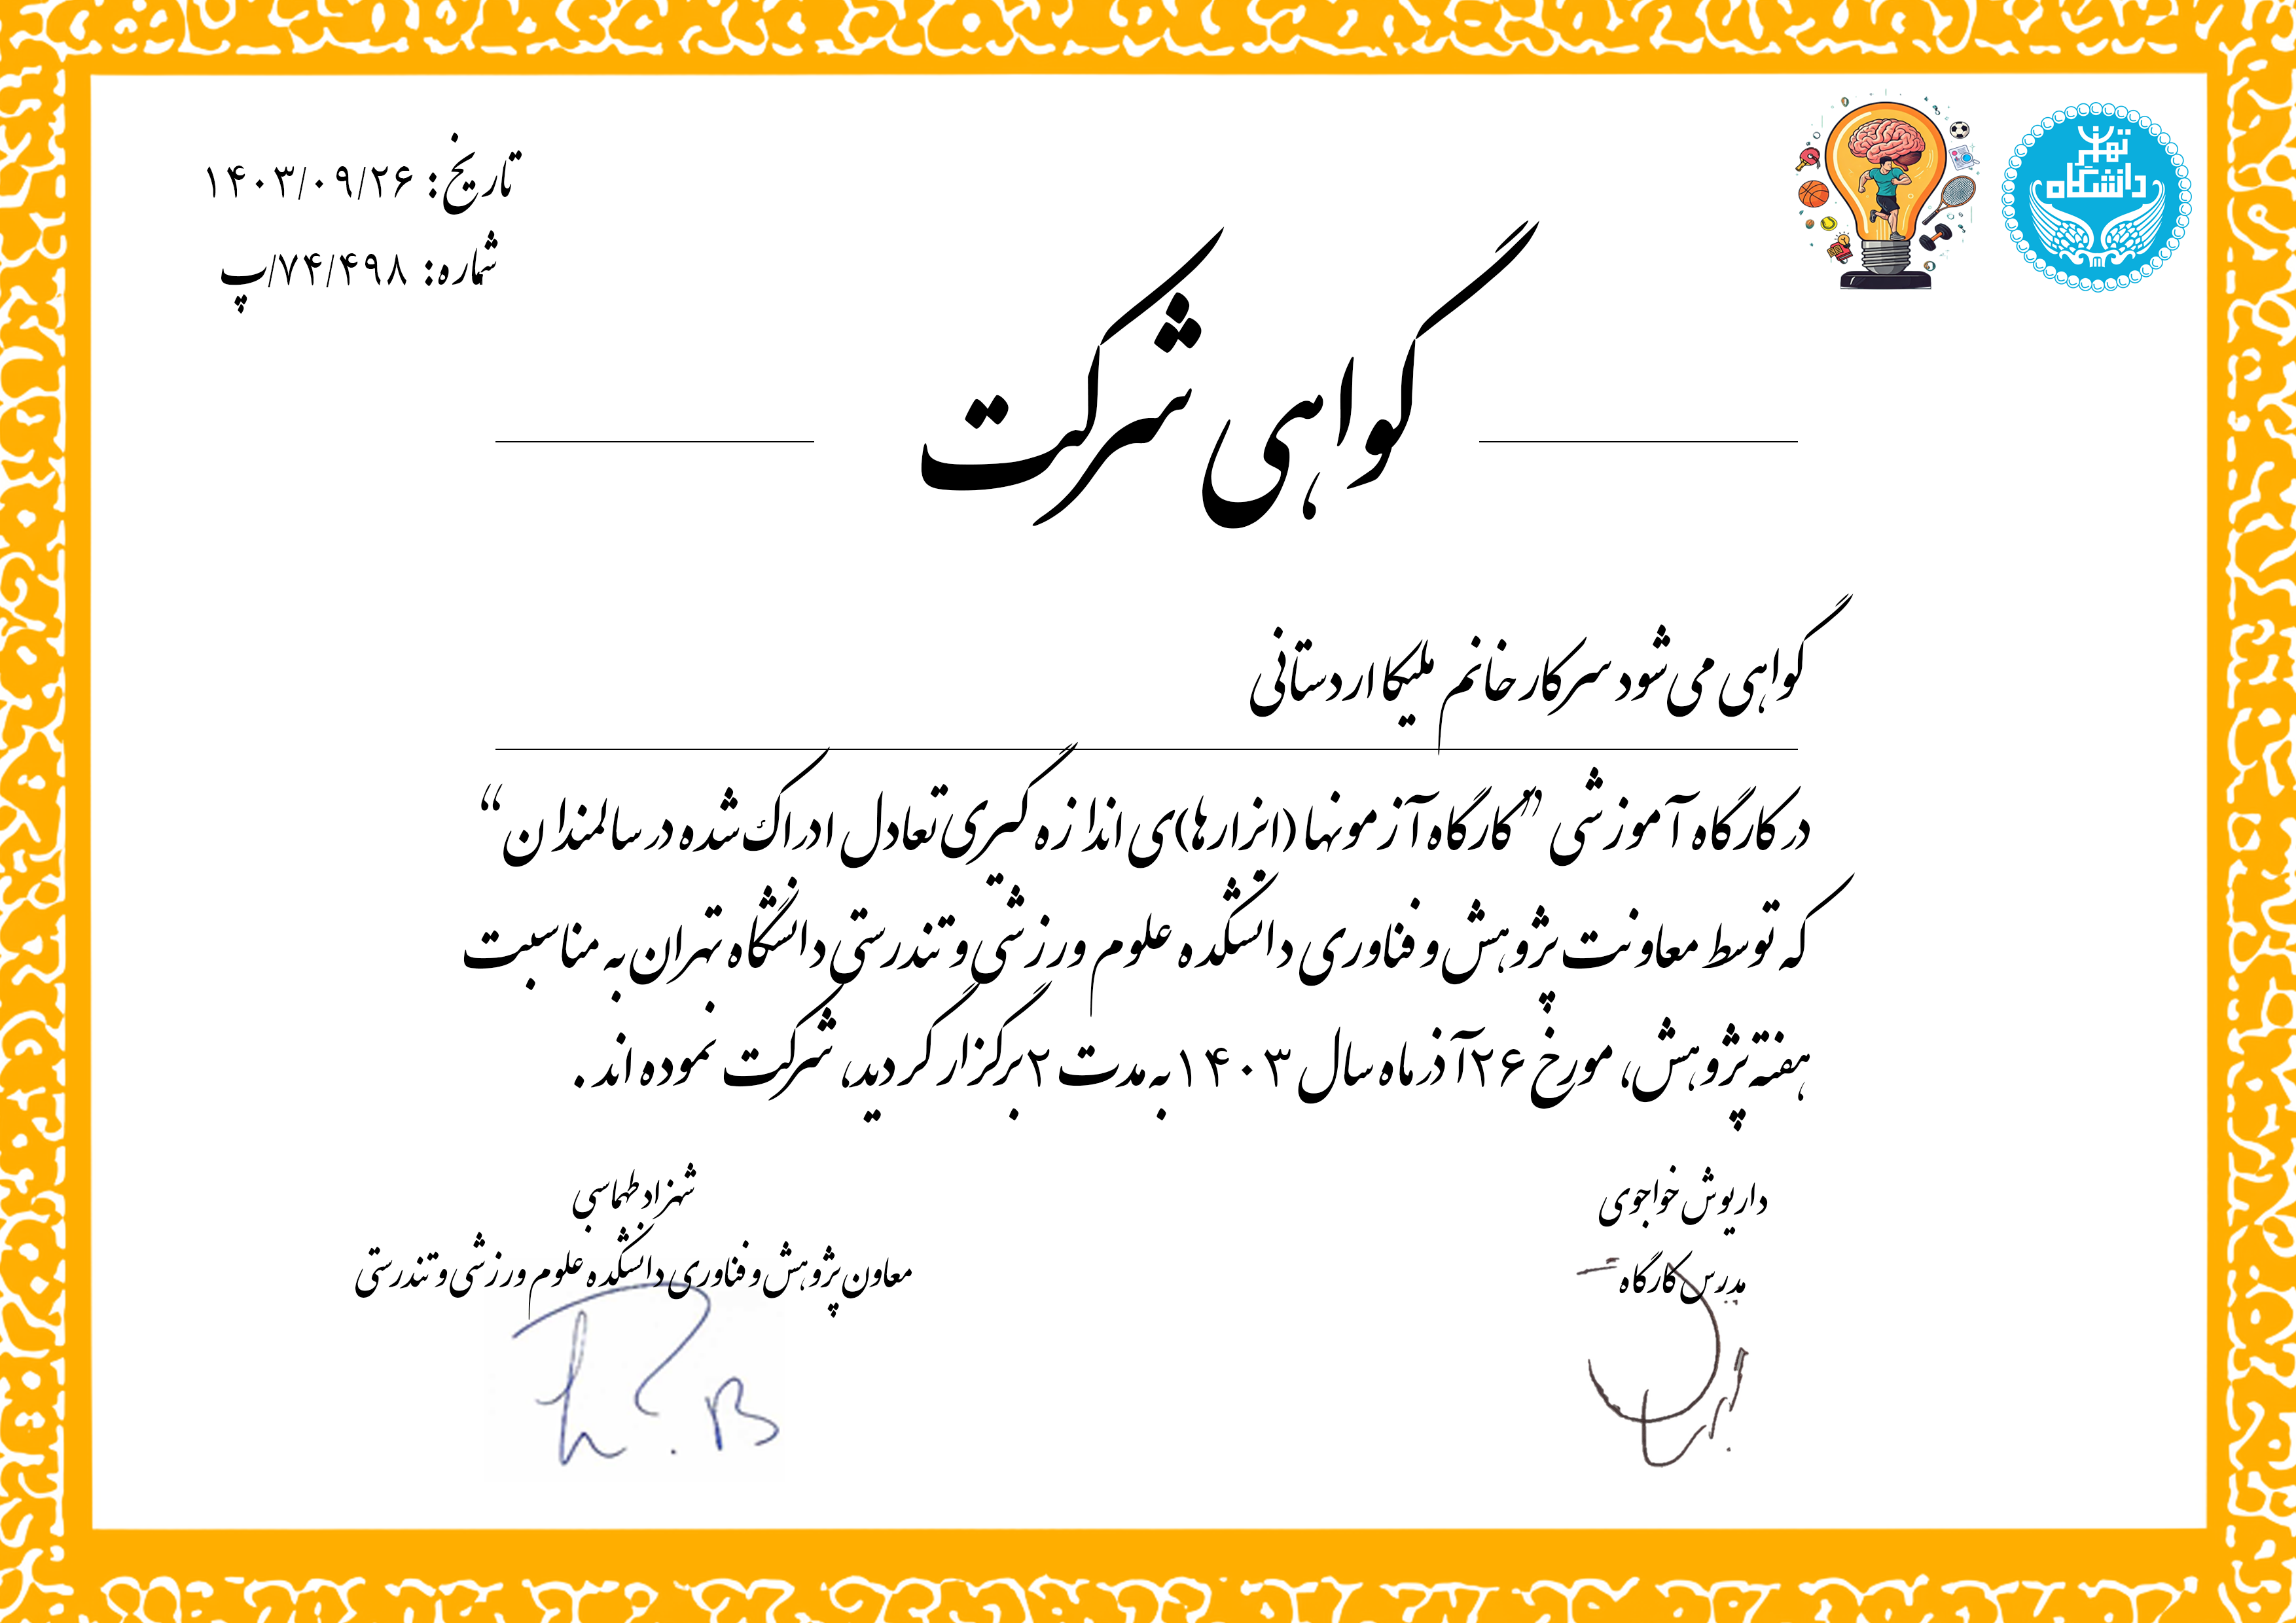 تهران
دانشگاه
تاریخ: ۱۴۰۳/۰۹/۲۶
شماره: ۷۴/۴۹۸/پ
گواهی شرکت
گواهی می شود سرکار خانم ملیکا اردستانی
در کارگاه آموزشی ”کارگاه آزمونها (ابزارها)ی اندازه گیری تعادل ادراک شده در سالمندان“
که توسط معاونت پژوهش و فناوری دانشکده علوم ورزشی و تندرستی دانشگاه تهران به مناسبت
هفته پژوهش، مورخ ۲۶ آذر ماه سال ۱۴۰۳ به مدت ۲ برگزار گردید، شرکت نموده اند.
داریوش خواجوی
مدرس کارگاه
شهزاد طهماسبی
معاون پژوهش و فناوری دانشکده علوم ورزشی و تندرستی